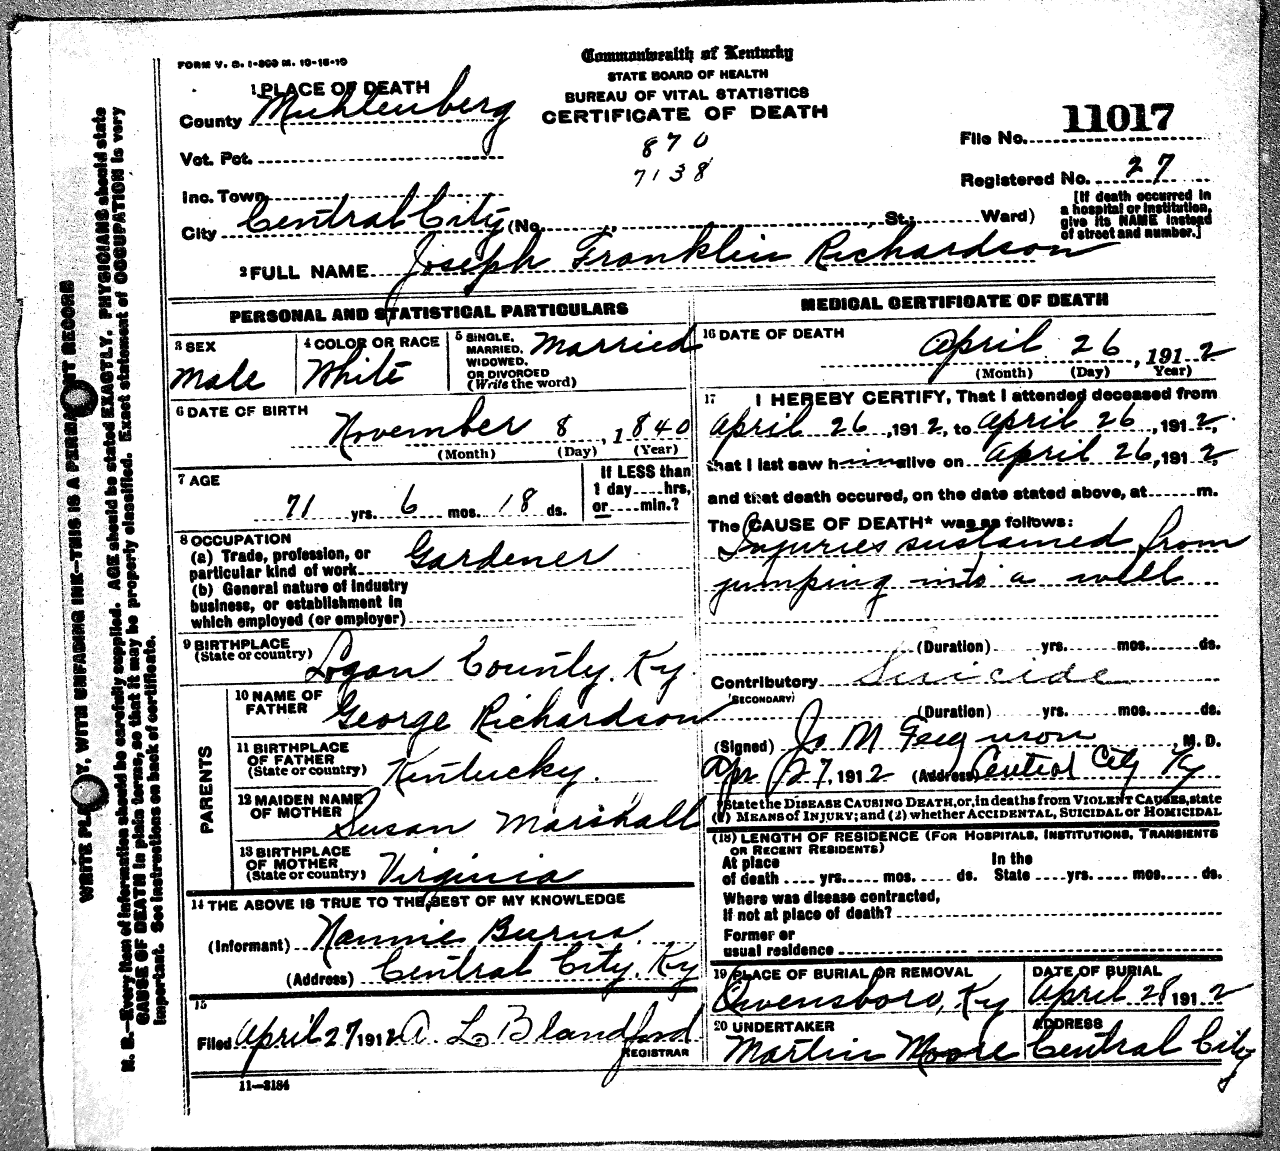 FORM V. S. 1-300 M. 10-15-10
Commonwealth of Kentucky
STATE BOARD OF HEALTH
BUREAU OF VITAL STATISTICS
CERTIFICATE OF DEATH
870
7138
File No. 11017
Registered No. 27
[If death occurred in
a hospital or institution,
give its NAME instead
of street and number.]
1 PLACE OF DEATH
County Muhlenberg
Vot. Pct.
Inc. Town
City Central City (No. , St.; Ward)
2 FULL NAME Joseph Franklin Richardson
PERSONAL AND STATISTICAL PARTICULARS
3 SEX
Male
4 COLOR OR RACE
White
5 SINGLE,
MARRIED,
WIDOWED,
OR DIVORCED
(Write the word)
Married
6 DATE OF BIRTH
November 8, 1840
(Month) (Day) (Year)
7 AGE
71 yrs. 6 mos. 18 ds.
If LESS than
1 day....hrs,
or....min.?
8 OCCUPATION
(a) Trade, profession, or
particular kind of work Gardener
(b) General nature of industry
business, or establishment in
which employed (or employer)
9 BIRTHPLACE
(State or country) Logan County. Ky
PARENTS
10 NAME OF
FATHER George Richardson
11 BIRTHPLACE
OF FATHER
(State or country) Kentucky.
12 MAIDEN NAME
OF MOTHER Susan Marshall
13 BIRTHPLACE
OF MOTHER
(State or country) Virginia
14 THE ABOVE IS TRUE TO THE BEST OF MY KNOWLEDGE
(Informant) Nannie Burns.
(Address) Central City. Ky
15
Filed April 27 1912 A. L Blandford
REGISTRAR
11—3184
MEDICAL CERTIFICATE OF DEATH
16 DATE OF DEATH
April 26, 1912
(Month) (Day) Year)
17 I HEREBY CERTIFY, That I attended deceased from
April 26, 1912, to April 26, 1912,
that I last saw him alive on April 26, 1912,
and that death occured, on the date stated above, at......m.
The CAUSE OF DEATH* was as follows:
Injuries sustained from
jumping into a well
(Duration) yrs. mos. ds.
Contributory Suicide
(SECONDARY)
(Duration) yrs. mos. ds.
(Signed) Jo M Ferguson M. D.
Apr 27, 1912 (Address) Central City Ky
*State the DISEASE CAUSING DEATH, or, in deaths from VIOLENT CAUSES, state
(1) MEANS OF INJURY; and (2) whether ACCIDENTAL, SUICIDAL OR HOMICIDAL
(18) LENGTH OF RESIDENCE (FOR HOSPITALS, INSTITUTIONS, TRANSIENTS
OR RECENT RESIDENTS)
At place In the
of death.....yrs.....mos.....ds. State.....yrs.....mos.....ds.
Where was disease contracted,
if not at place of death?
Former or
usual residence
19 PLACE OF BURIAL OR REMOVAL
Owensboro, Ky
DATE OF BURIAL
April 28 1912
20 UNDERTAKER
Martin Moore
ADDRESS
Central City
WRITE PLAINLY, WITH UNFADING INK—THIS IS A PERMANENT RECORD
N. B.—Every item of information should be carefully supplied. AGE should be stated EXACTLY. PHYSICIANS should state
CAUSE OF DEATH in plain terms, so that it may be properly classified. Exact statement of OCCUPATION is very
important. See instructions on back of certificate.